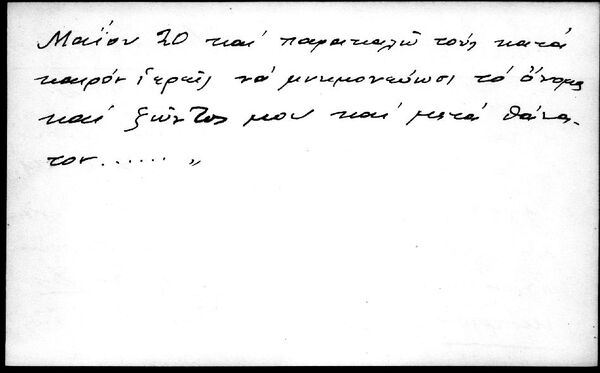 Μαΐου 20 καί παρακαλῶ τούς κατά
καιρόν ἱερεῖς νά μνημονεύωσι τό ὄνομα
καί ζῶντος μου καί μετά θάνα-
τον...... „